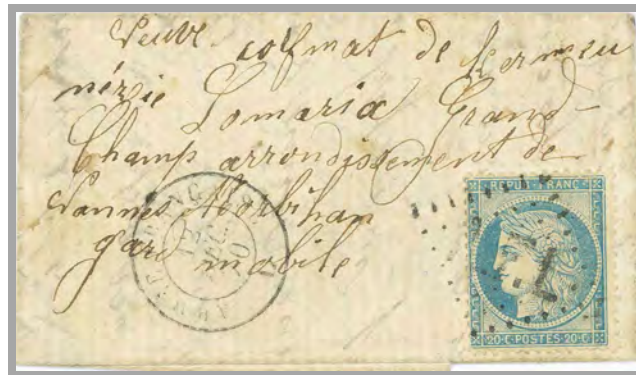 Veuve colmat de Kermeu
nézie Lomaria Grand-
Champ arrondissement de
Vannes Morbihan
gard mobile
REPUB. FRANC.
20·C·POSTES·20·C